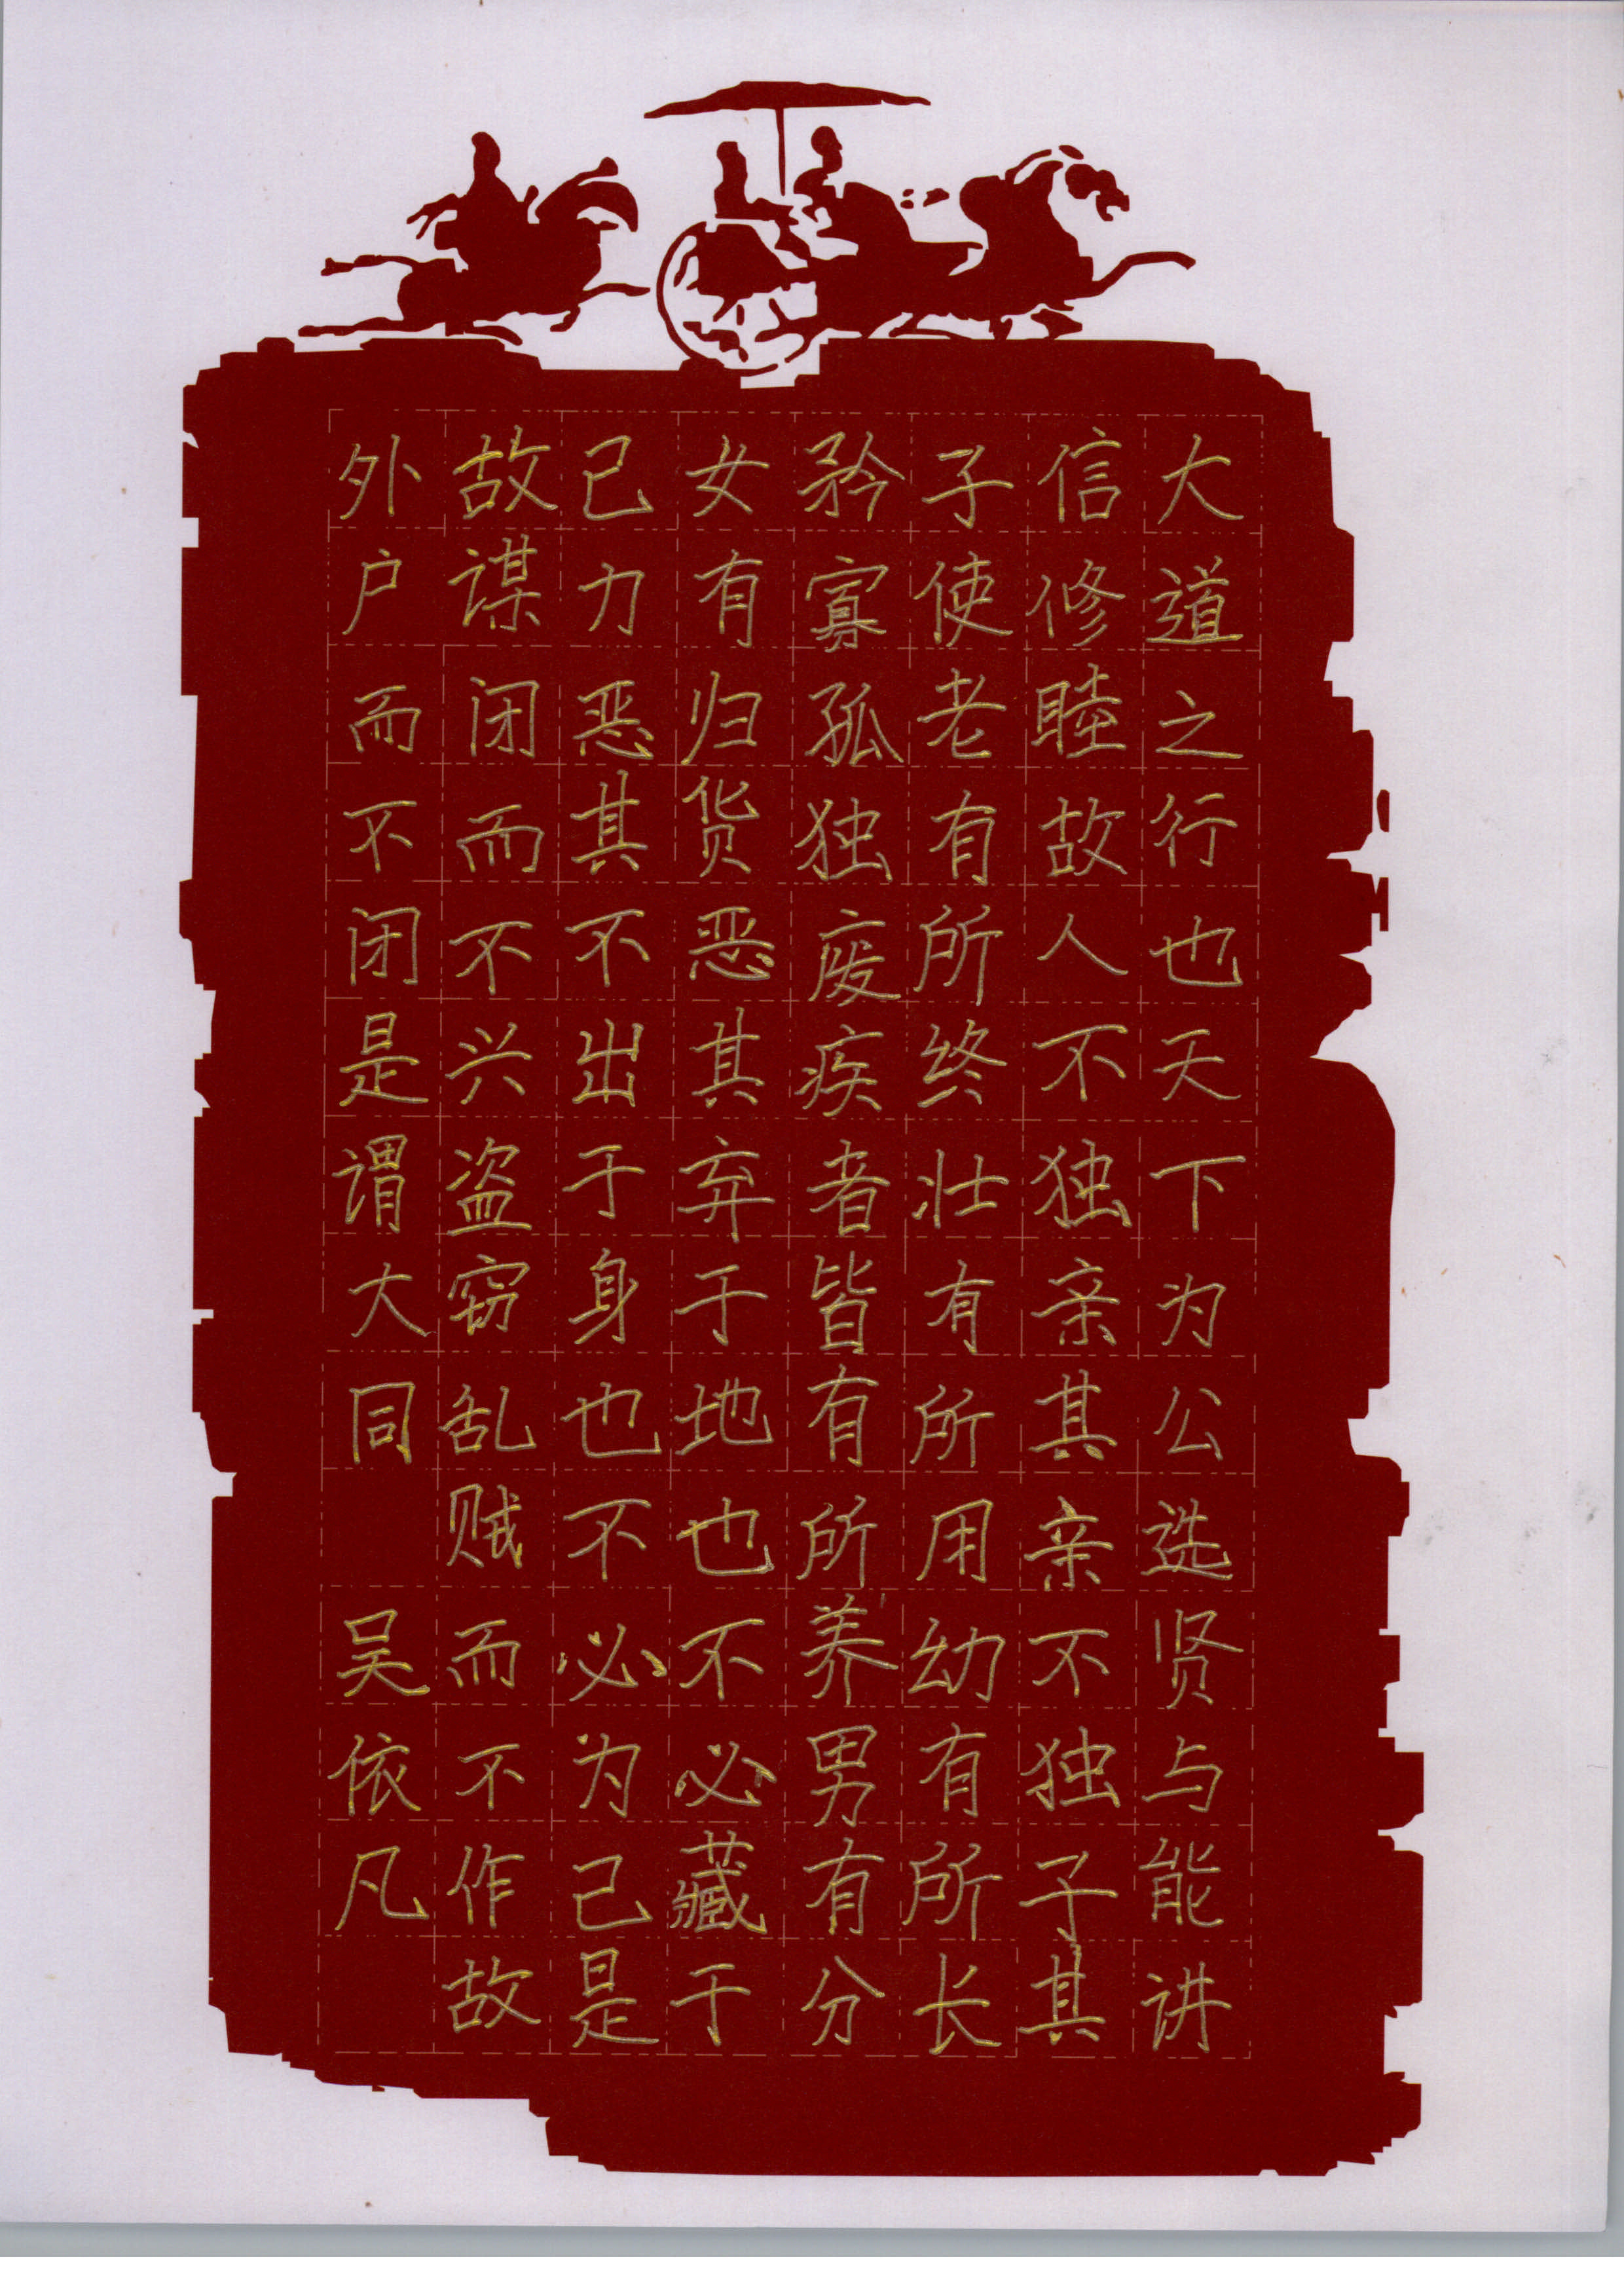 大道之行也天下为公选贤与能讲
信修睦故人不独亲其亲不独子其
子使老有所终壮有所用幼有所长
矜寡孤独废疾者皆有所养男有分
女有归货恶其弃于地也不必藏于
己力恶其不出于身也不必为己是
故谋闭而不兴盗窃乱贼而不作故
外户而不闭是谓大同
吴依凡